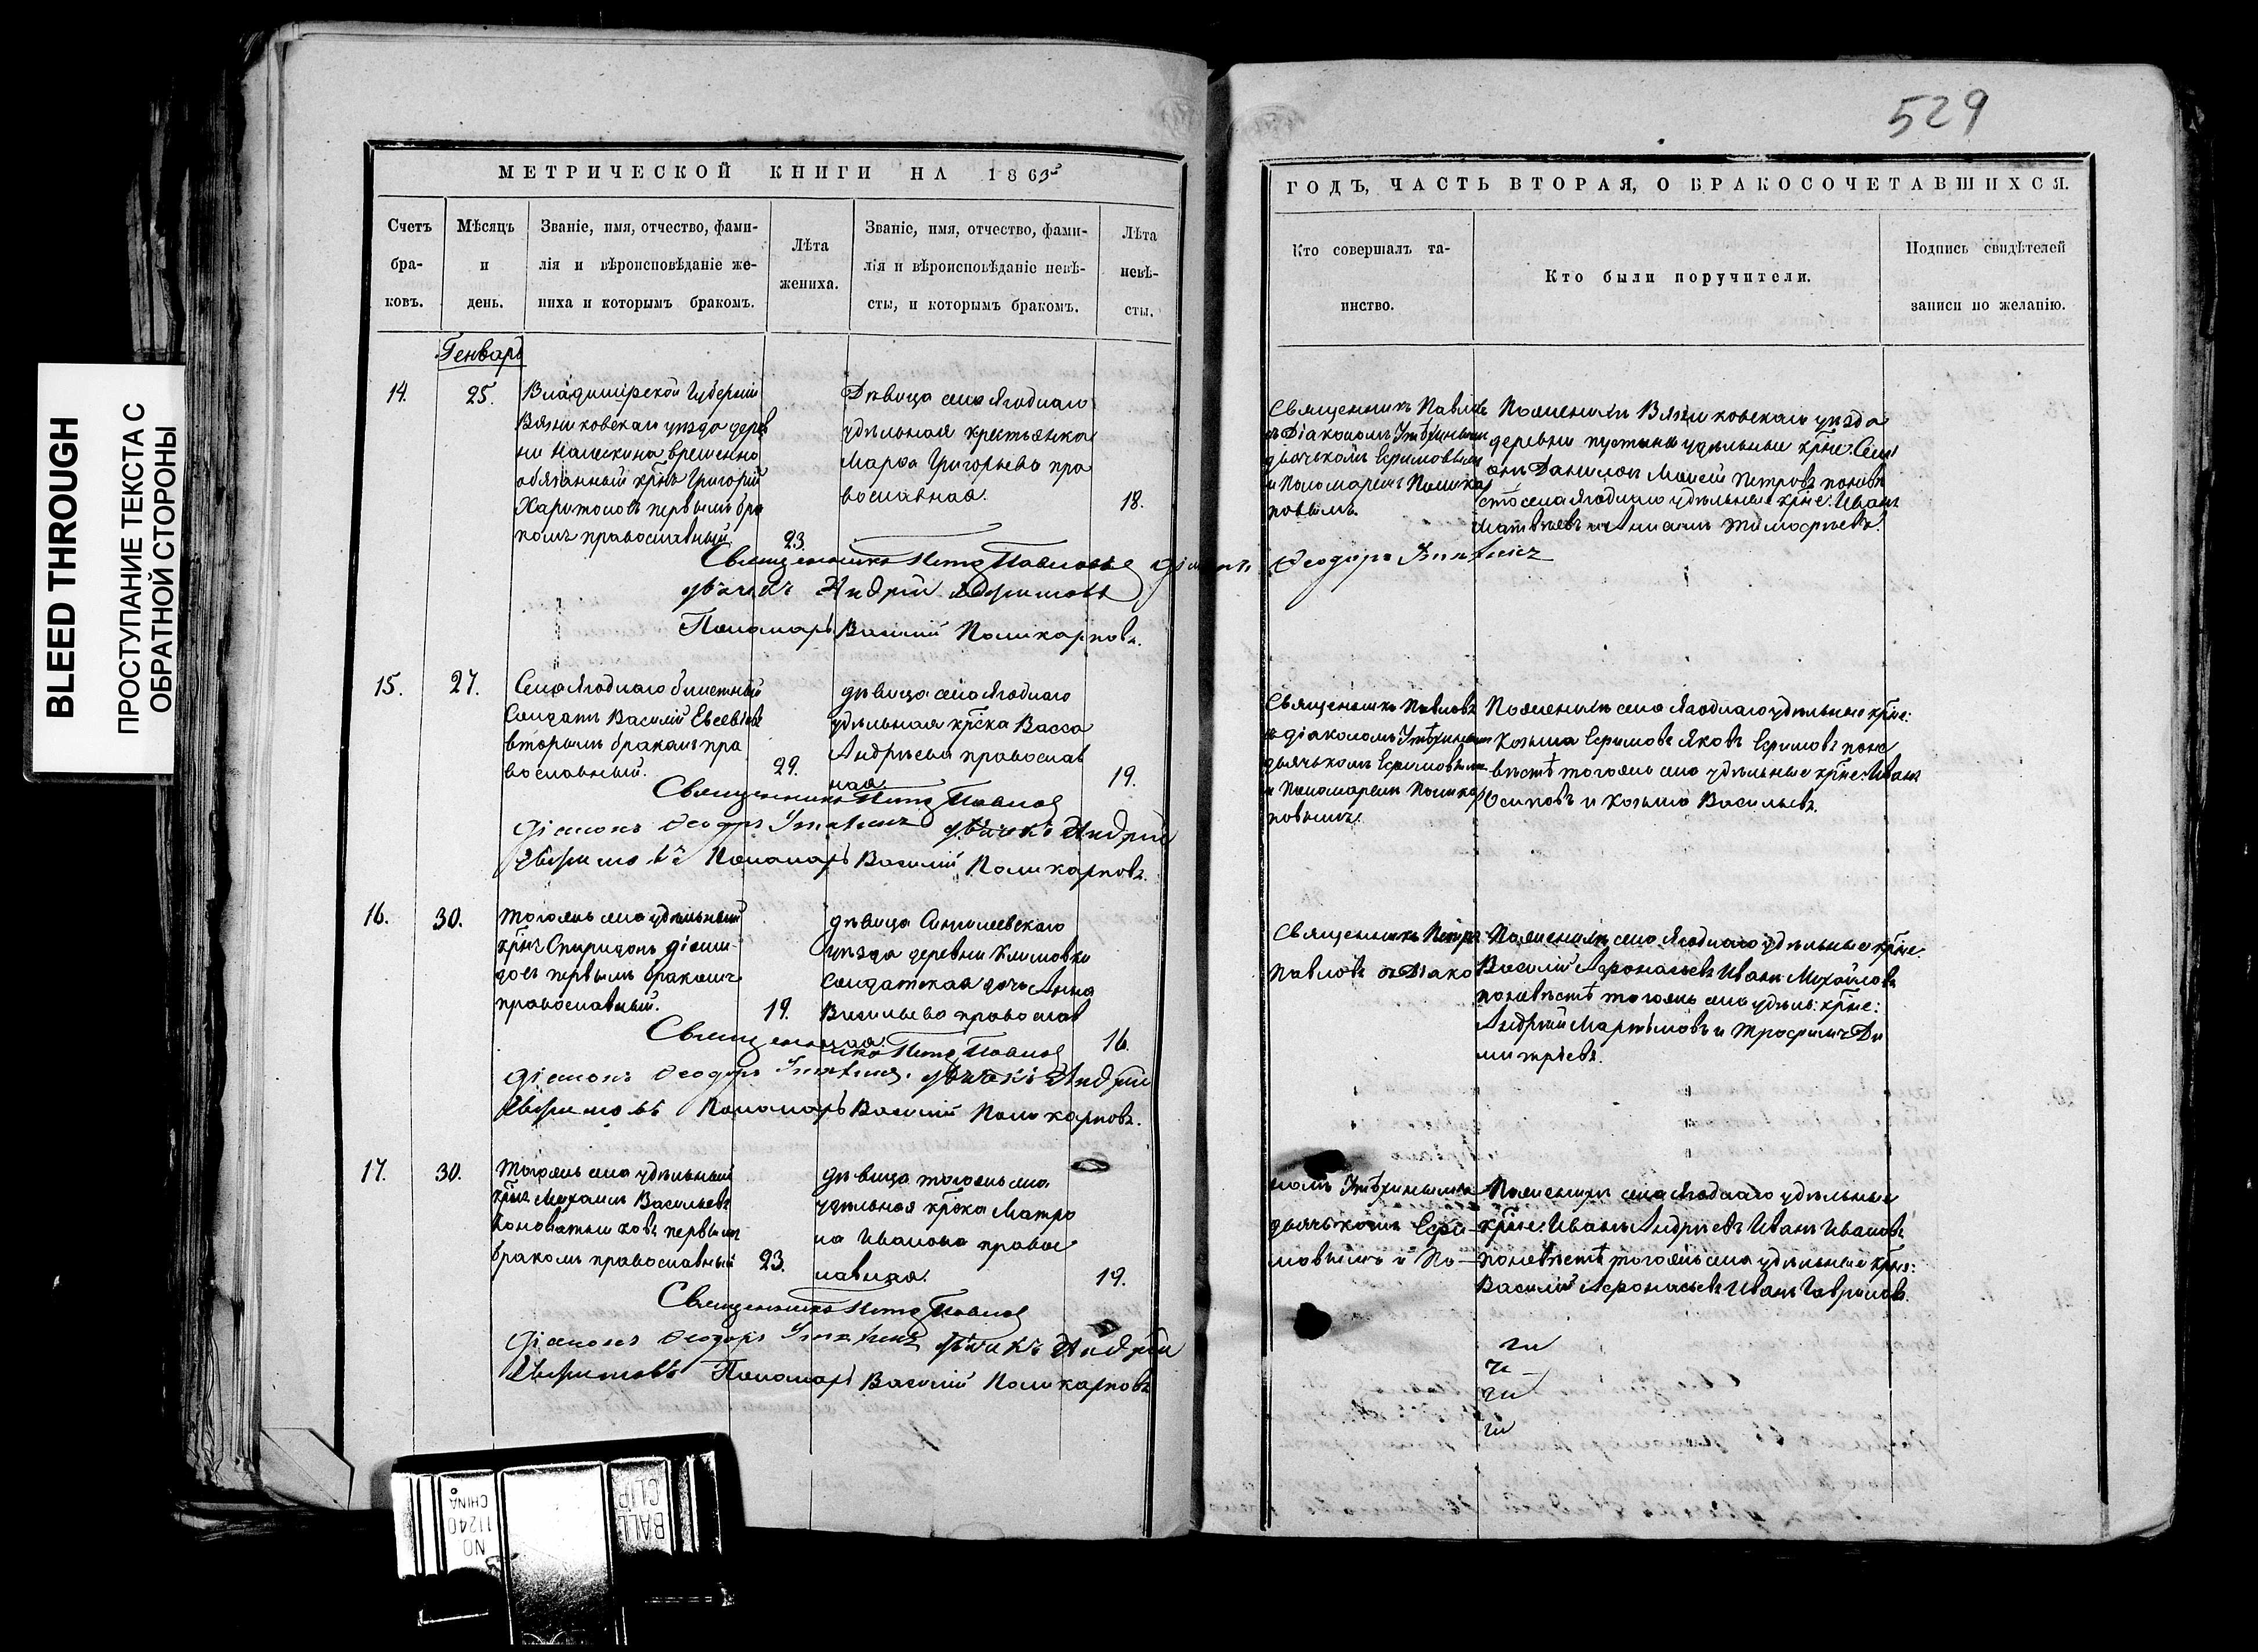 BLEED THROUGH
ПРОСТУПАНИЕ ТЕКСТА С
ОБРАТНОЙ СТОРОНЫ
529
МЕТРИЧЕСКОЙ КНИГИ НА 186
ГОДЪ, ЧАСТЬ ВТОРАЯ, О БРАКОСОЧЕТАВШИХСЯ.
Счетъ
бра-
ковъ.
Мѣсяцъ
и
день.
Званіе, имя, отчество, фами-
лія и вѣроисповѣданіе же-
ниха и которымъ бракомъ.
Лѣта
жениха.
Званіе, имя, отчество, фами-
лія и вѣроисповѣданіе невѣ-
сты, и которымъ бракомъ.
Лѣта
невѣ-
сты.
Кто совершалъ та-
инство.
Кто были поручители.
Подпись свидѣтелей
записи по желанію.
Генварь
14.
25.
Владимірской Губерніи
Вязниковскаго уѣзда дерев
ни временно
обязанный крнъ Григорій
Харитоновъ первымъ бра
комъ православный
23.
Дѣвица села Ягоднаго
удѣльная крестьянка
Марѳа Григорьева пра
вославная.
18.
Священникъ Павловъ
съ Діакономъ
дьячькомъ Ефимовымъ
и Пономаремъ Поликар
повымъ.
Поженихѣ Вязниковскаго уѣзда
деревни пустыни удѣльные крне: Семи
онъ Даниловъ Моисей Петровъ поневѣ
стѣ села Ягоднаго удѣльные крне: Иванъ
Матвѣевъ и Тимофѣевъ.
Священникъ Петръ Павловъ Діаконъ Ѳеодоръ
дьячекъ Андрей Ефимовъ
Пономарь Василій Поликарповъ.
15.
27.
Села Ягоднаго билетный
Солдатъ Василій Евсевіевъ
вторымъ бракомъ пра
вославный.
29.
дѣвица села Ягоднаго
удѣльная крска Васса
Андрѣева православ
ная.
19.
Священникъ Павловъ
съ діакономъ
дьячькомъ Ефимовымъ
и Пономаремъ Поликар
повымъ.
Поженихѣ села Ягоднаго удѣльные крне:
Козьма Ефимовъ Яковъ Ефимовъ поне
вѣстѣ тогожъ села удѣльные крне: Иванъ
Осиповъ и Козьма Васильевъ.
Священникъ Петръ Павловъ
Діаконъ Ѳеодоръ дьячекъ Андрей
Ефимовъ Пономарь Василій Поликарповъ.
16.
30.
Тогожъ села удѣльный
крнъ Спиридонъ Діоми-
довъ первымъ бракомъ
православный.
19.
дѣвица Сингилеевскаго
уѣзда деревни Климовки
солдатская дочь Анна
Васильева православ
ная.
16.
Священникъ Петръ
Павловъ съ Діако
Поженихѣ села Ягоднаго удѣльные крне:
Василій Афонасьевъ Иванъ Михайловъ
поневѣстѣ тогожъ села удѣль: крне:
Андрей Мартыновъ и Трофимъ Ди
митріевъ.
Священникъ Петръ Павловъ
Діаконъ Ѳеодоръ дьячекъ Андрей
Ефимовъ Пономарь Василій Поликарповъ.
17.
30.
Тогожъ села удѣльный
крнъ Михаилъ Васильевъ
Коноватниковъ первымъ
бракомъ православный
23.
дѣвица тогожъ села
удѣльная крска Матро
на Иванова правос
лавная.
19.
номъ
дьячькомъ Ефи-
мовымъ и По-
Поженихѣ села Ягоднаго удѣльные
крне: Иванъ Андрѣевъ Иванъ Ивановъ
поневѣстѣ тогожъ села удѣльные крне:
Василій Афонасьевъ Иванъ Гавриловъ.
Священникъ Петръ Павловъ
Діаконъ Ѳеодоръ дьячекъ Андрей
Ефимовъ Пономарь Василій Поликарповъ
BALL
CLIP
NO
11240
CHINA